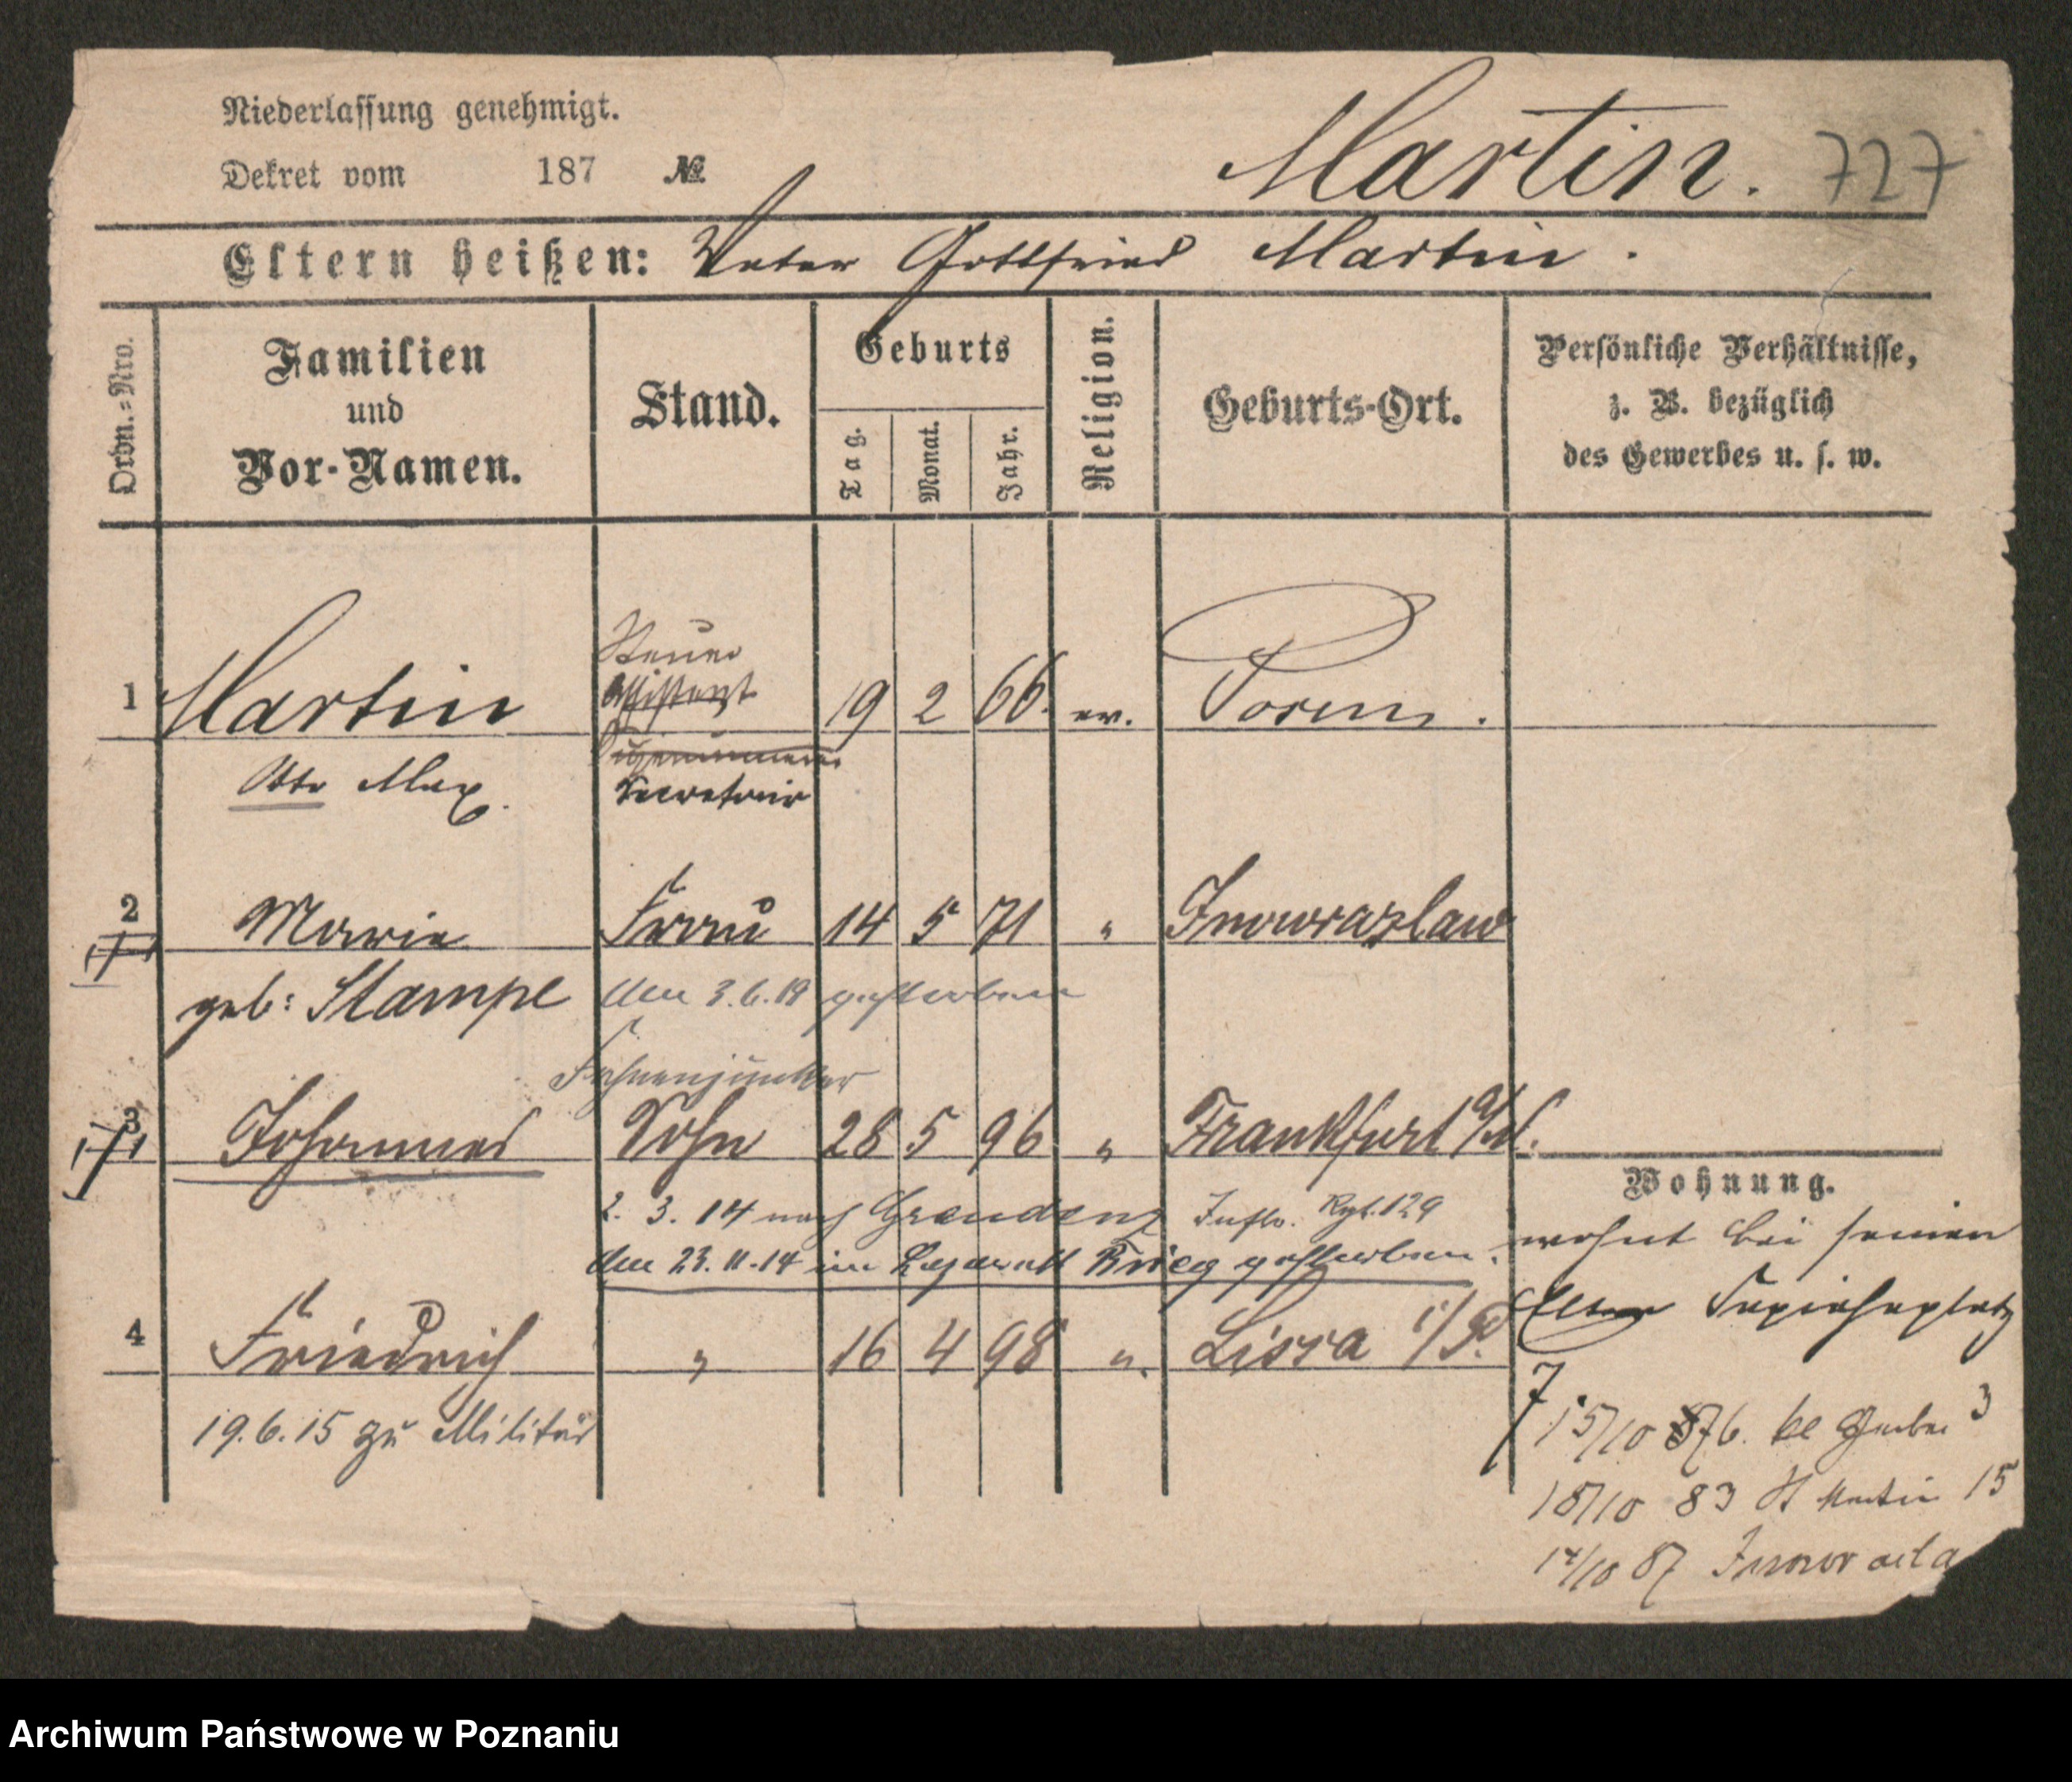 Niederlassung genehmigt.
Dekret vom 187 №
Martin. 727
Eltern heißen: Vater Gottfried Martin.
Ordn.=Nro.
Familien
und
Vor-Namen.
Stand.
Geburts
Tag.
Monat.
Jahr.
Religion.
Geburts-Ort.
Persönliche Verhältnisse,
z. B. bezüglich
des Gewerbes u. s. w.
Steuer
Assistent
1 Martin 19 2 66. ev. Posen.
Otto Max. Secretair
2 Marie Frau 14 5 71 " Inowrazlaw
geb: Stampe den 3.6.19 gestorben
Fahnenjunker
3 Johannes Sohn 28 5 96 " Frankfurt a/M.
2. 3. 14 nach Graudenz Inftr. Rgt. 129
den 23.11.14 im Lazarett Brieg gestorben.
4 Friedrich " 16 4 98 " Lissa i/P.
19.6.15 zu Militär
Wohnung.
wohnt bei seinen
Eltern Sapiehaplatz
7
15/10 76. kl Gerber 3
15/10 83 St Martin 15
14/10 87
Archiwum Państwowe w Poznaniu